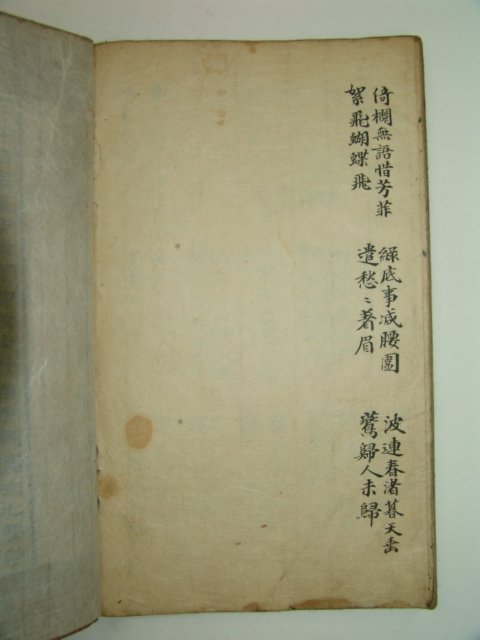 倚欄無語惜芳菲
絮飛蝴蝶飛
緣底事减腰圍
遣愁〻著眉
波連春渚暮天垂
鷰歸人未歸